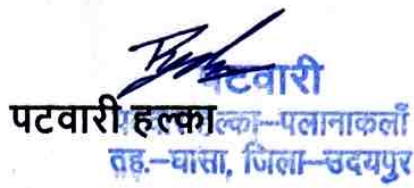 पटवारी
पटवारी हल्का
हल्का–पलानाकलाँ
तह.–घासा, जिला–उदयपुर